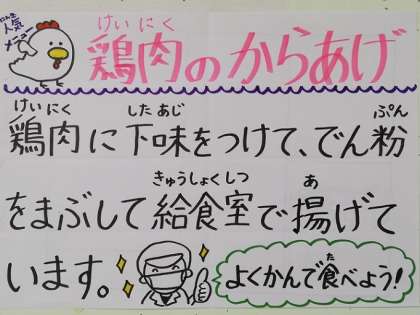 人気
メニュー
けいにく
鶏肉のからあげ
けいにく したあじ ぷん
鶏肉に下味をつけて、でん粉
きゅうしょくしつ あ
をまぶして給食室で揚げて
います。
た
よくかんで食べよう!